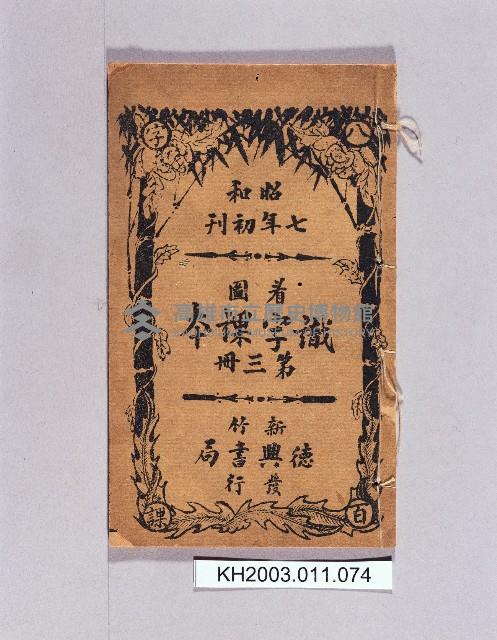 八百字課
昭和
七年初刊
看圖
識字課本
第三冊
新竹
德興書局
發行
高雄市立歷史博物館
KH2003.011.074